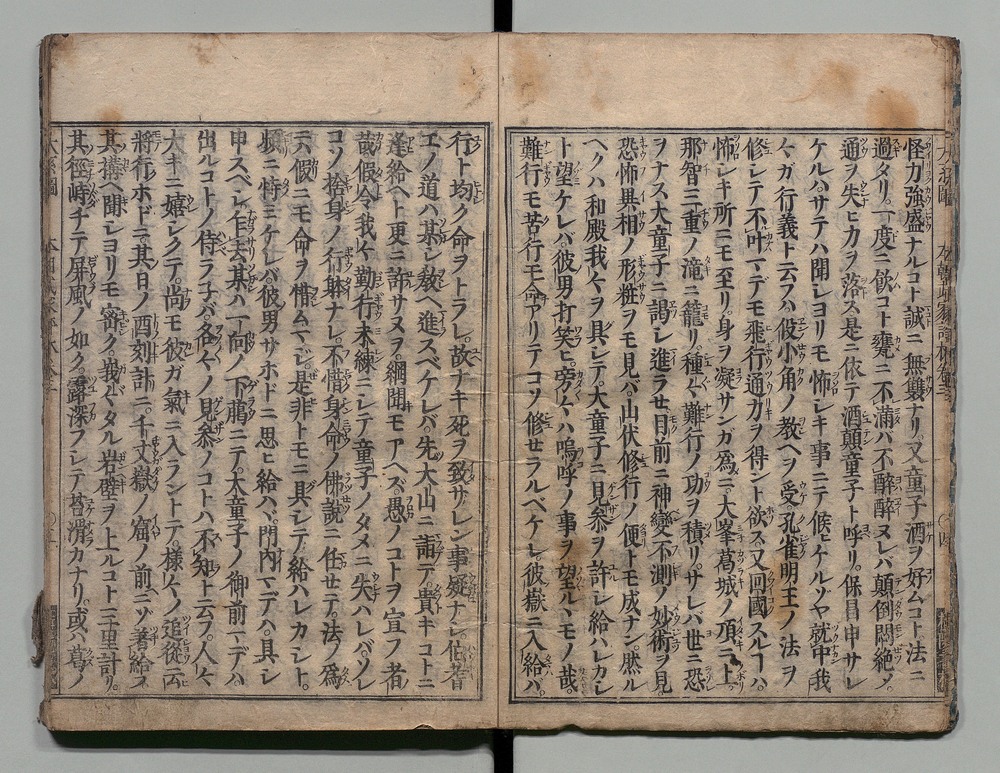 怪力強盛ナルコト誠ニ無雙ナリ又童子酒ヲ好ムコト法ニ
過タリ一度ニ飲コト甕ニ不滿バ不醉醉ヌレバ顛倒悶絶ノ
通ヲ失ヒカヲ落ス是ニ依テ酒顛童子ト呼リ保昌申サレ
ケルハサテハ聞シヨリモ怖シキ事ニテ候ヒケルゾヤ就中我
々ガ行義ト云フハ役小角ノ教ヘヲ受孔雀明王ノ法ヲ
修シテ不叶マデモ飛行通力ヲ得ント欲ス又回國スルヿハ
怖シキ所ニモ至リ身ヲ凝サンガ爲ニ大峯葛城ノ頂ニ上
那智三重ノ滝ニ籠リ種々難行ノ功ヲ積リサレバ世ニ恐
ヲナス大童子ニ謁シ進ラセ目前ニ神變不測ノ妙術ヲ見
恐怖異相ノ形粧ヲモ見バ山伏修行ノ便トモ成ナン願ル
ヘクハ和殿我々ヲ具シテ大童子ニ見參ヲ許シ給ヘカシ
ト望ケレバ彼男打笑ヒ旁々ハ嗚呼ノ事ヲ望ルヽモノ哉
難行モ苦行モ命アリテコソ修セラルベケレ彼嶽ニ入給ハ
行ト均ク命ヲトラレ故ナキ死ヲ致サレン事疑ナシ伯耆
エノ道ハ某シ敎ヘ進スベケレバ先大山ニ詣テ貴キコトニ
逢給ヘト更ニ許サヌヲ綱聞モアヘズ愚ノコトヲ宣フ者
哉假令我々勤行未練ニシテ童子ノタメニ失ハレバソレ
コソ捨身ノ行躰ナレ不惜身命ノ佛說ニ任セテ法ノ爲
ニハ假ニモ命ヲ惜ムマシ是非トモニ具シテ給ハレカシト
頻ニ恃ミケレバ彼男サホドニ思ヒ給ハヾ門內マデハ具シ
申スベシ乍去某ハ一向ノ下﨟ニテ大童子ノ御前マデハ
出ルコトノ侍ラ子バ各々ノ見參ノコトハ不知ト云フ人々
大キニ嬉シクテ尚モ彼ガ氣ニ入ラントテ樣々ノ追從云
將行ホドニ其日ノ酉刻計ニ千丈嶽ノ窟ノ前ニゾ著給フ
其搆ヘ聞シヨリモ密ク巍々タル岩壁ヲ上ルコト三里計リ
其徑峙チテ屏風ノ如ク露深フシテ苔滑カナリ或ハ葛ノ